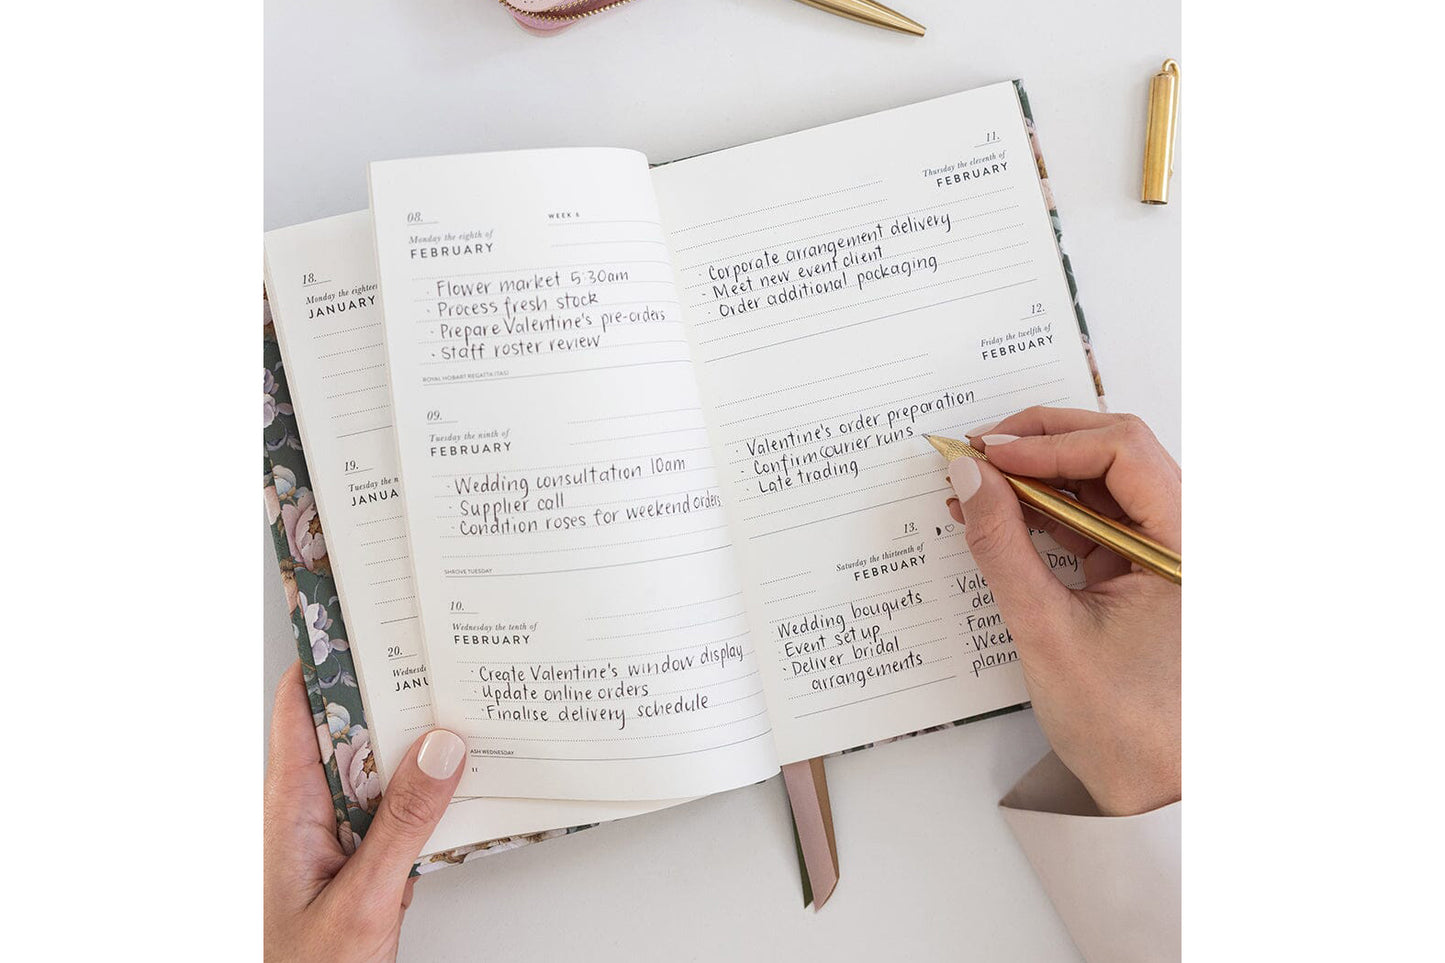 18.
Monday the
JANUARY
19.
Tuesday the
20.
08.
WEEK 6
Monday the eighth of
FEBRUARY
· Flower market 5:30am
· Process fresh stock
· Prepare Valentine's pre-orders
· Staff roster review
ROYAL HOBART REGATTA (TAS)
09.
Tuesday the ninth of
FEBRUARY
· Wedding consultation 10am
· Supplier call
· Condition roses for weekend orders
SHROVE TUESDAY
10.
Wednesday the tenth of
FEBRUARY
· Create Valentine's window display
· Update online orders
· Finalise delivery schedule
ASH WEDNESDAY
11.
Thursday the eleventh of
FEBRUARY
· Corporate arrangement delivery
· Meet new event client
· Order additional packaging
12.
Friday the twelfth of
FEBRUARY
· Valentine's order preparation
· Confirm courier runs
· Late trading
13.
Saturday the thirteenth of
FEBRUARY
· Wedding bouquets
· Event set up
· Deliver bridal
arrangements
Day